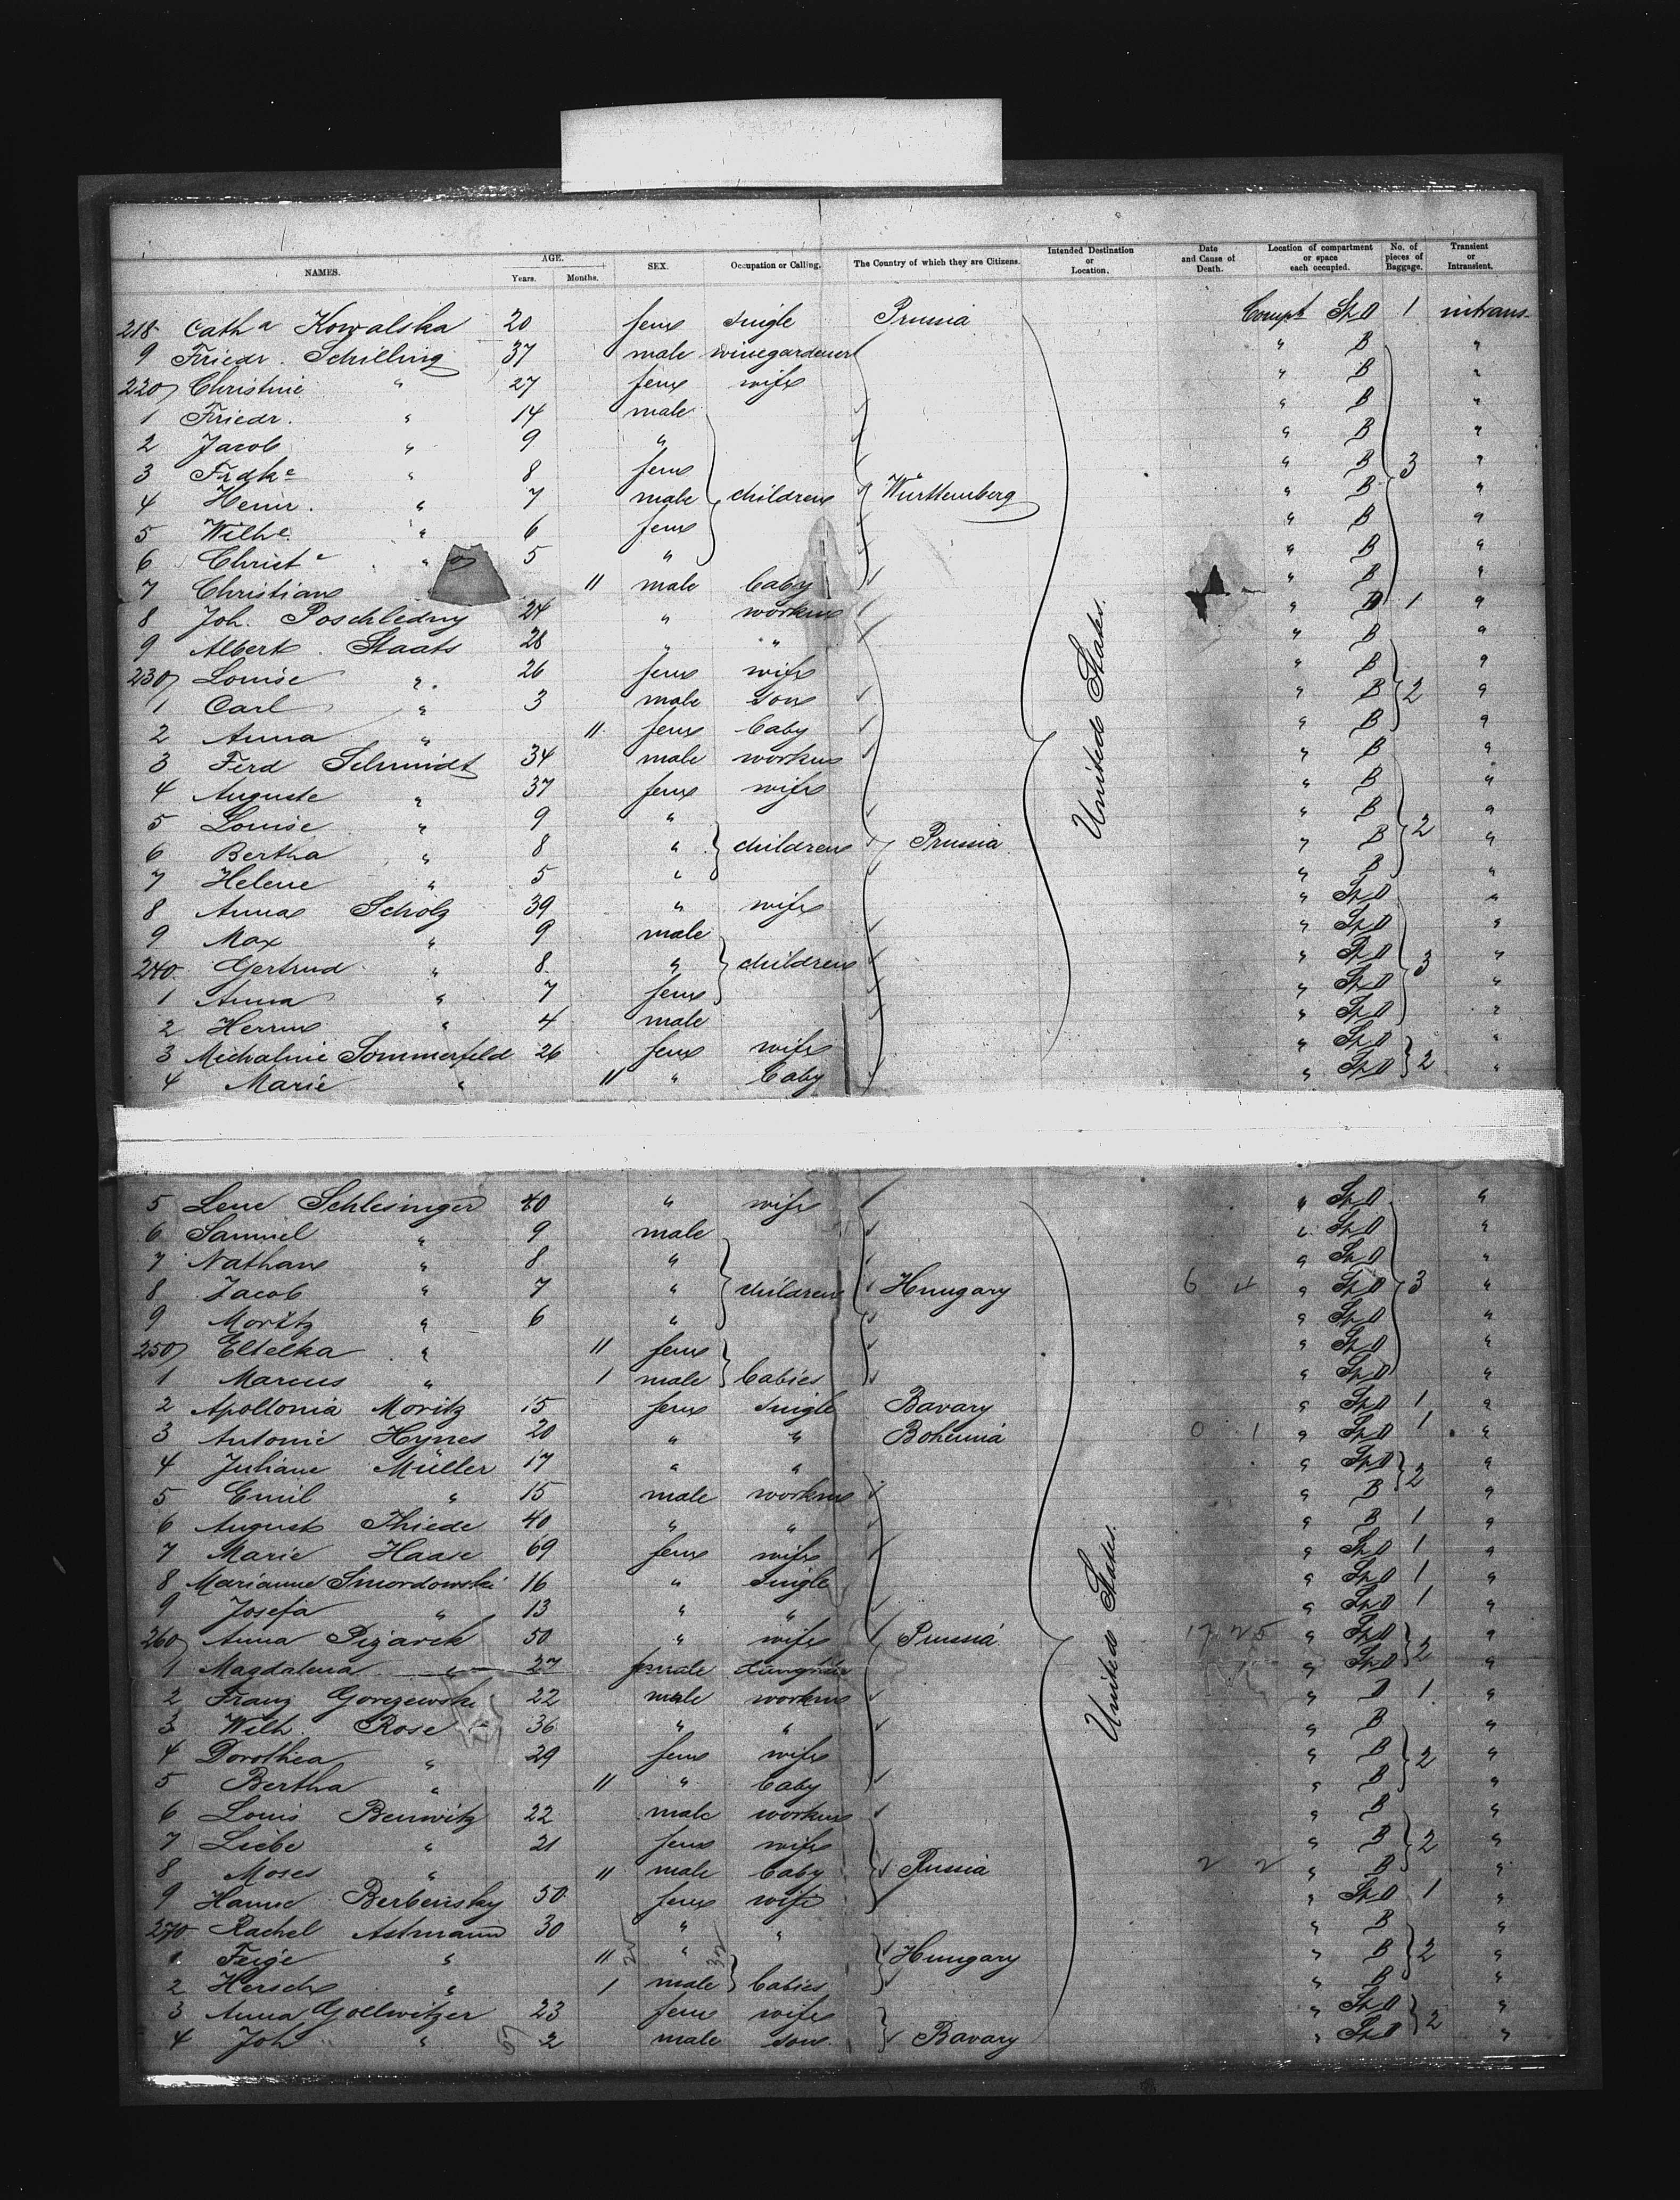 NAMES. AGE. Years. Months. SEX. Occupation or Calling. The Country of which they are Citizens. Intended Destination or Location. Date and Cause of Death. Location of compartment or space each occupied. No. of pieces of Baggage. Transient or Intransient.
218 Cath a Kowalska 20 fem single Prussia Compt StD 1 intrans
9 Friedr. Schilling 37 male winegardener " B "
220 Christine " 27 fem wife " B "
1 Friedr. " 14 male " B "
2 Jacob " 9 " " B "
3 Frdke " 8 fem " B 3 "
4 Heinr. " 7 male children Württemberg " B "
5 Wilhe " 6 fem " B "
6 Christe " 5 " " B "
7 Christian 11 male baby " B "
8 Joh. Poschledny 24 " workm " D 1 "
9 Albert Staats 28 " " " B "
230 Louise " 26 fem wife " B "
1 Carl " 3 male son " B 2 "
2 Anna " 11 fem baby United States. " B "
3 Ferd Schmidt 34 male workm " B "
4 Auguste " 37 fem wife " B "
5 Louise " 9 " " B 2 "
6 Bertha " 8 " children Prussia " B "
7 Helene " 5 " " B "
8 Anna Scholz 39 " wife " StD "
9 Max " 9 male " StD "
240 Gertrud " 8 " children " StD 3 "
1 Anna " 7 fem " StD "
2 Herm " 4 male " StD "
3 Michaline Sommerfeld 26 fem wife " StD "
4 Marie " 11 " baby " StD 2 "
5 Lene Schlesinger 40 " wife " StD "
6 Samuel " 9 male " StD "
7 Nathan " 8 " " StD "
8 Jacob " 7 " children Hungary 6 4 " StD 3 "
9 Moritz " 6 " " StD "
250 Eltelka " 11 fem " StD "
1 Marcus " 1 male babies " StD "
2 Apollonia Moritz 15 fem single Bavary " StD 1 "
3 Antonie Hynes 20 " " Bohemia 0 1 " StD 1 "
4 Juliane Müller 17 " " " StD "
5 Emil " 15 male workm " B 2 "
6 August Thiede 40 " " " B 1 "
7 Marie Haase 69 fem wife " StD 1 "
8 Marianne Smordowski 16 " single " StD 1 "
9 Josefa " 13 " " United States. " StD 1 "
260 Anna Pizarek 50 " wife Prussia 17 25 " StD "
1 Magdalena " 27 female " StD 2 "
2 Franz Gorczewski 22 male workm " D 1 "
3 Wilh. Rose 36 " " " B "
4 Dorothea " 29 fem wife " B 2 "
5 Bertha " 11 " baby " B "
6 Louis Benwitz 22 male workm " B "
7 Liebe " 21 fem wife " B 2 "
8 Moses " 11 male baby Russia 2 2 " B "
9 Hanne 50 fem wife " StD 1 "
270 Rachel Astmann 30 " " " B "
1 Feige " 11 " Hungary " B 2 "
2 Hersch " 1 male babies " B "
3 Anna Gollwitzer 23 fem wife " StD "
4 Joh " 2 male son Bavary " StD 2 "